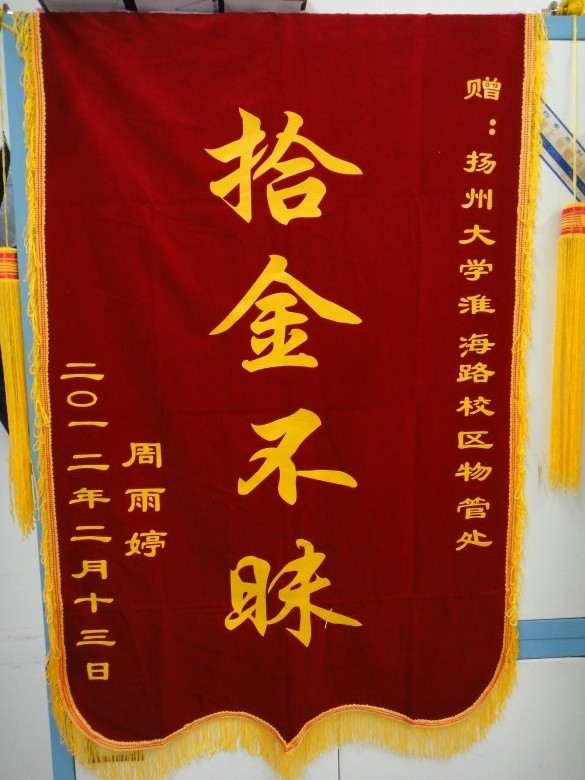 赠：扬州大学淮海路校区物管处
拾金不昧
周雨婷
二〇一二年二月十三日